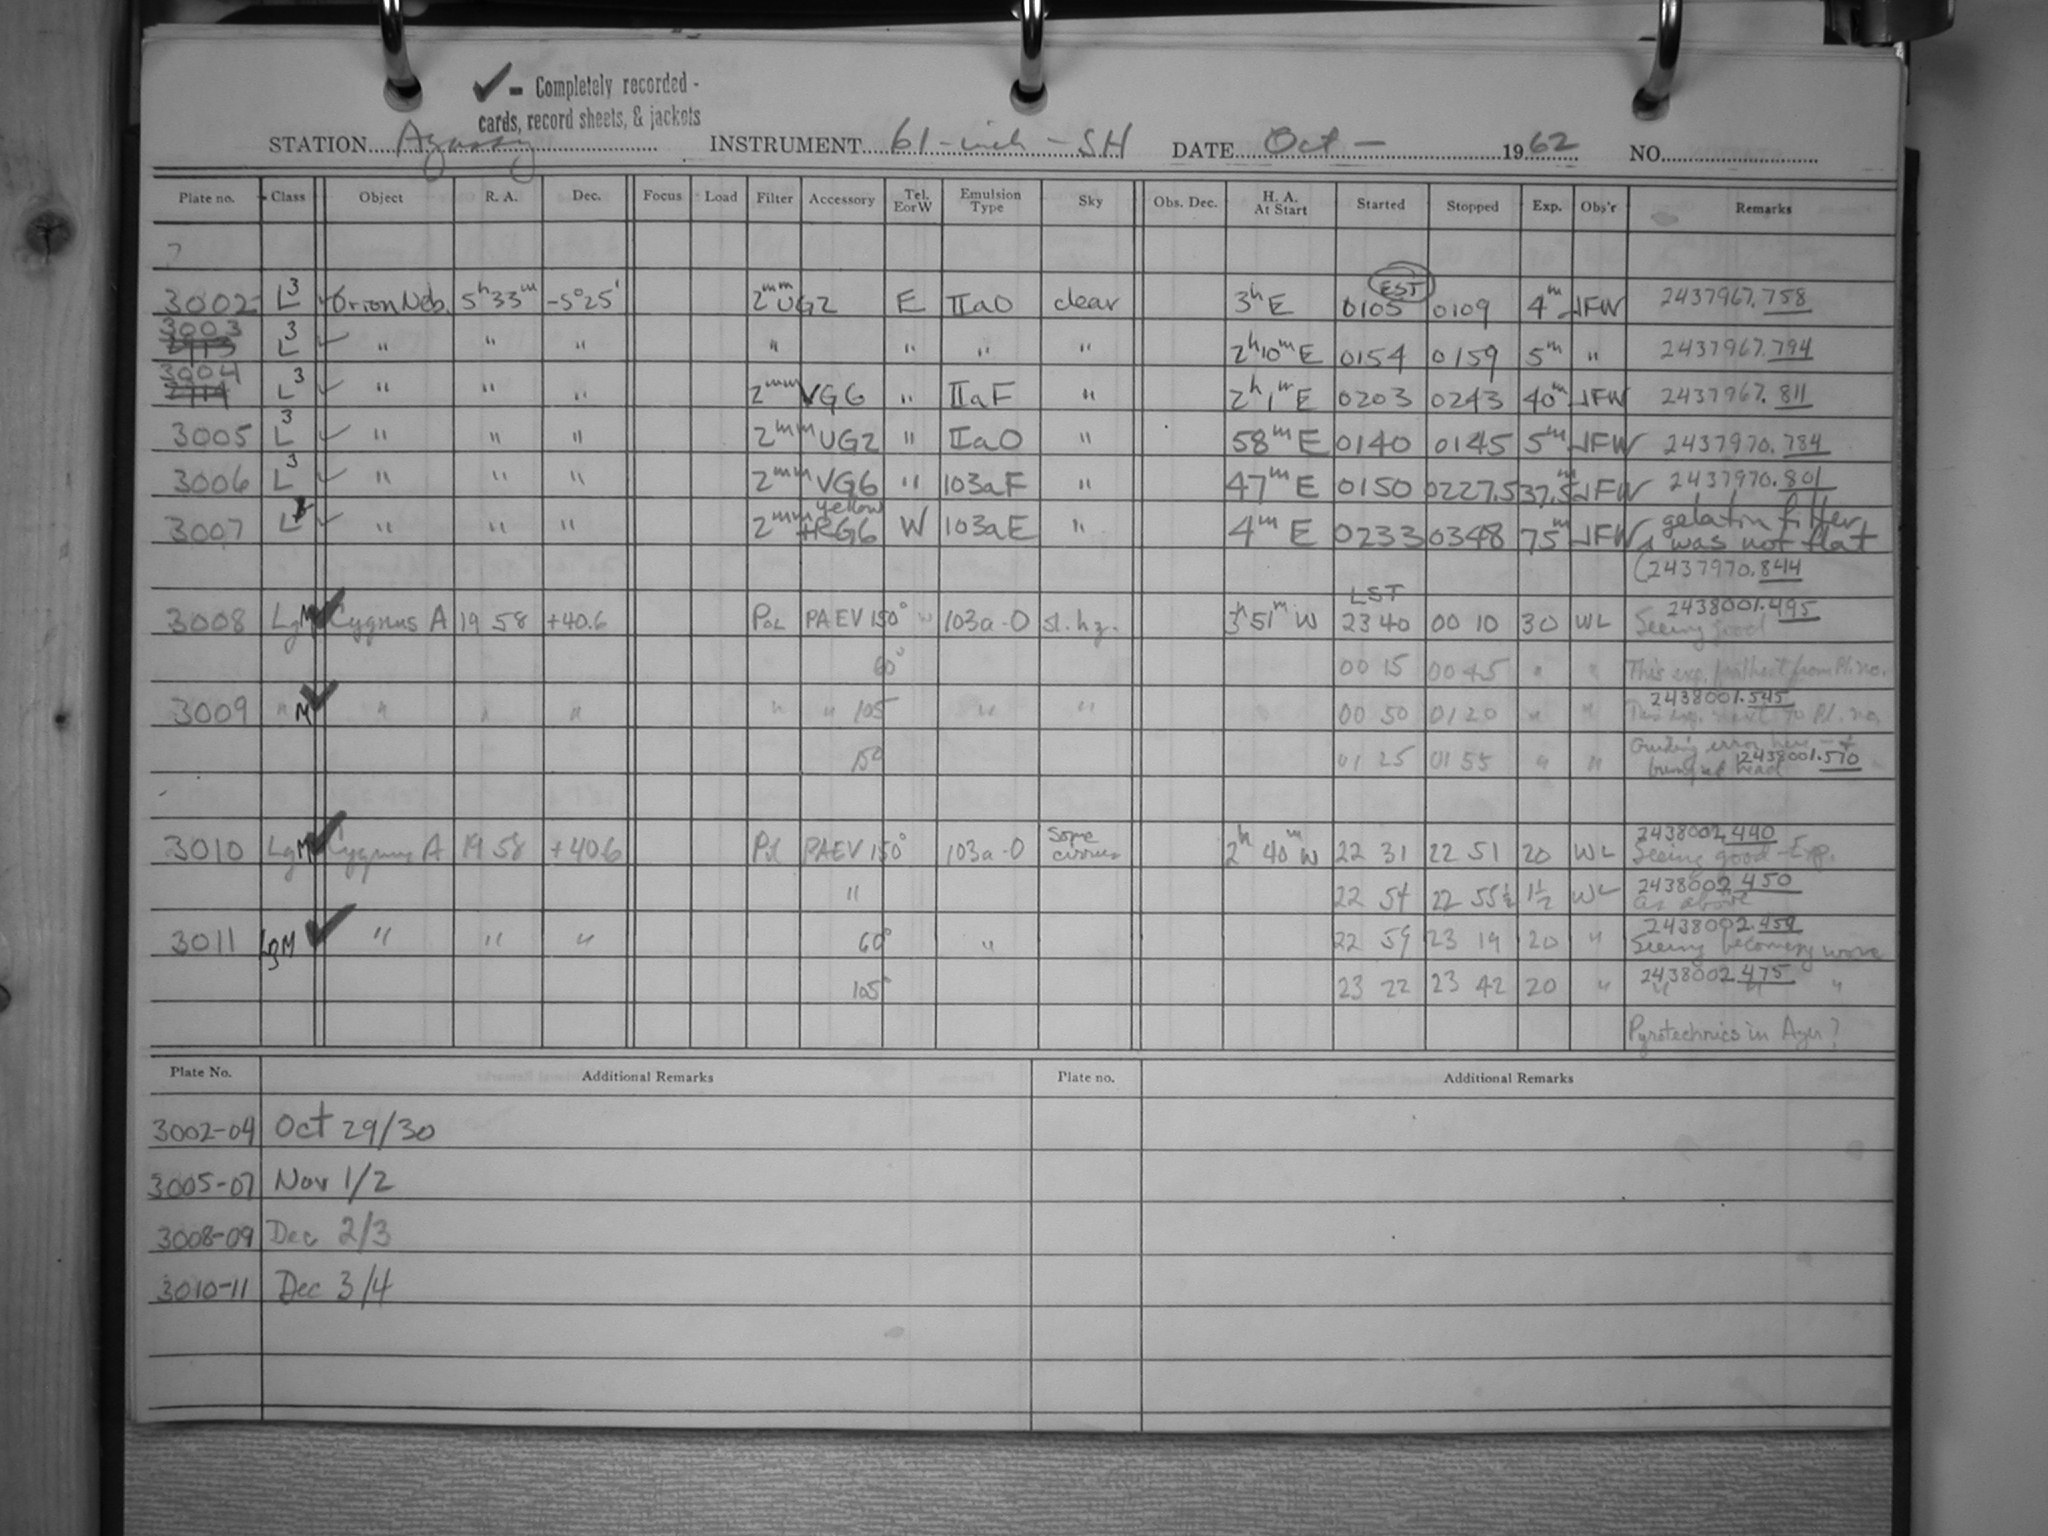 ✓ - Completely recorded -
cards, record sheets, & jackets
STATION Agassiz INSTRUMENT 61-inch - SH DATE Oct - 1962 NO.
Plate no. Class Object R. A. Dec. Focus Load Filter Accessory Tel. E or W Emulsion Type Sky Obs. Dec. H. A. At Start Started Stopped Exp. Obs'r Remarks
?
EST
3002 L3 ✓ Orion Neb. 5h33m -5°25' 2mm UG2 E IIaO clear 3h E 0105 0109 4m JFW 2437967.758
3003 L3 ✓ " " " " " " " 2h10m E 0154 0159 5m " 2437967.794
3004 L3 ✓ " " " 2mm VG6 " IIaF " 2h1m E 0203 0243 40m JFW 2437967.811
3005 L3 ✓ " " " 2mm UG2 " IIaO " 58m E 0140 0145 5m JFW 2437970.784
3006 L3 ✓ " " " 2mm VG6 " 103aF " 47m E 0150 0227.5 37.5m JFW 2437970.801
3007 L ✓ " " " 2mm yellow +RG6 W 103aE " 4m E 0233 0348 75m JFW gelatin filter
was not flat
(2437970.844
LST
3008 LgM ✓ Cygnus A 19 58 +40.6 Pol PAEV 150° W 103a-O sl. hz. 3h51m W 23 40 00 10 30 WL 2438001.495
Seeing good
60° 00 15 00 45 " " This exp. farthest from Pl. no.
3009 " M ✓ " " " " " 105 " " 00 50 01 20 " " 2438001.545
This exp. next to Pl. no.
150 01 25 01 55 " " Guiding error here - I
bumped head 2438001.570
3010 LgM ✓ Cygnus A 19 58 +40.6 Pol PAEV 150° 103a-O some cirrus 2h 40m W 22 31 22 51 20 WL 2438002.440
Seeing good - Exp.
" 22 54 22 55½ 1½ WL 2438002.450
as above
3011 LgM ✓ " " " 60° " 22 59 23 19 20 " 2438002.459
Seeing becoming worse
105° 23 22 23 42 20 " 2438002.475
" " "
Pyrotechnics in Ayer?
Plate No. Additional Remarks Plate no. Additional Remarks
3002-04 Oct 29/30
3005-07 Nov 1/2
3008-09 Dec 2/3
3010-11 Dec 3/4